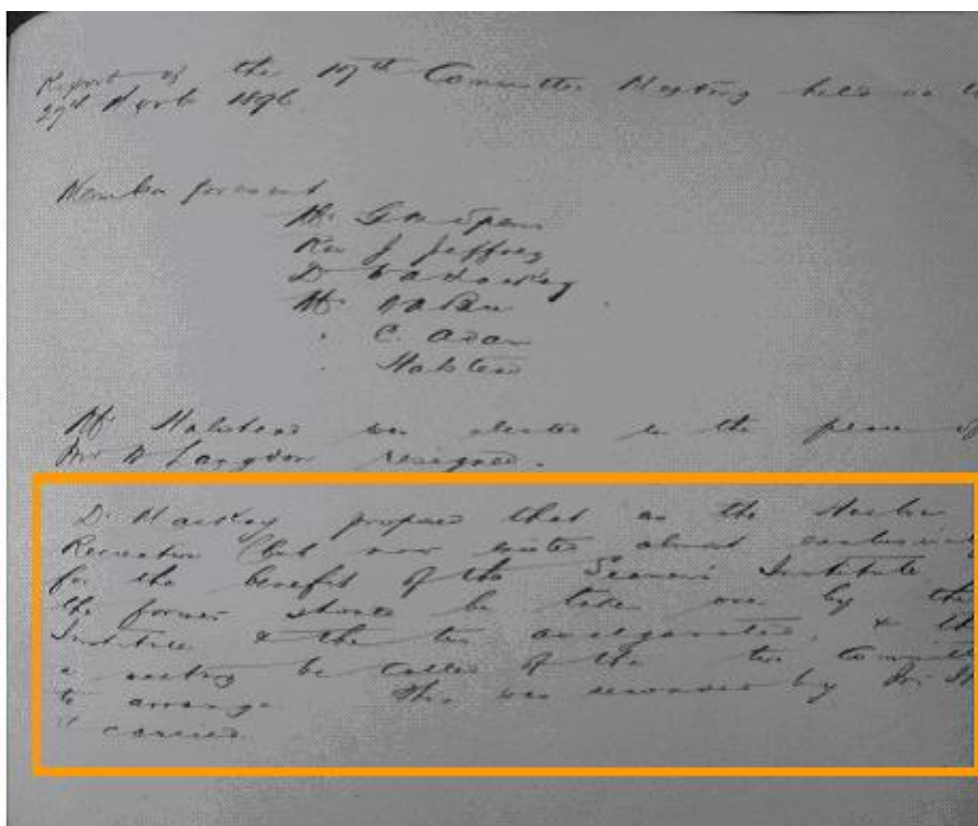 Report of the 107th Committee Meeting held on th
29th 1896
Member present
Mr. G
Rev J Jeffrey
D Mackay
Mr.
" C. Adam
" Halstead
Mr Halstead was elected in the place of
Mr Langdon resigned.
Dr Mackay proposed that as the
Recreation Club now exists almost exclusively
for the benefit of the Seamen's Institute
the former should be taken over by the
Institute & the two amalgamated, & th
a meeting be called of the two Committ
to arrange. This was seconded by Mr
& carried.